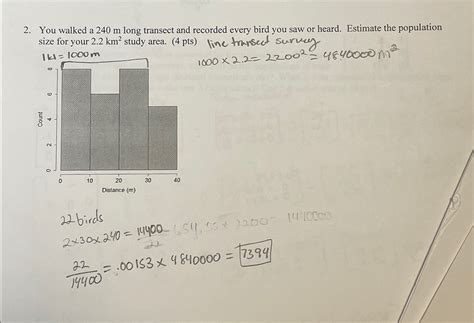 2. You walked a 240 m long transect and recorded every bird you saw or heard. Estimate the population
size for your 2.2 km² study area. (4 pts) line transect survey
1km = 1000m
1000 × 2.2 = 2200² = 4840000 m²
8
6
4
2
0
Count
0 10 20 30 40
Distance (m)
22 birds
2×30×240 = 14400
22
22/14400 = .00153 × 4840000 = 7394